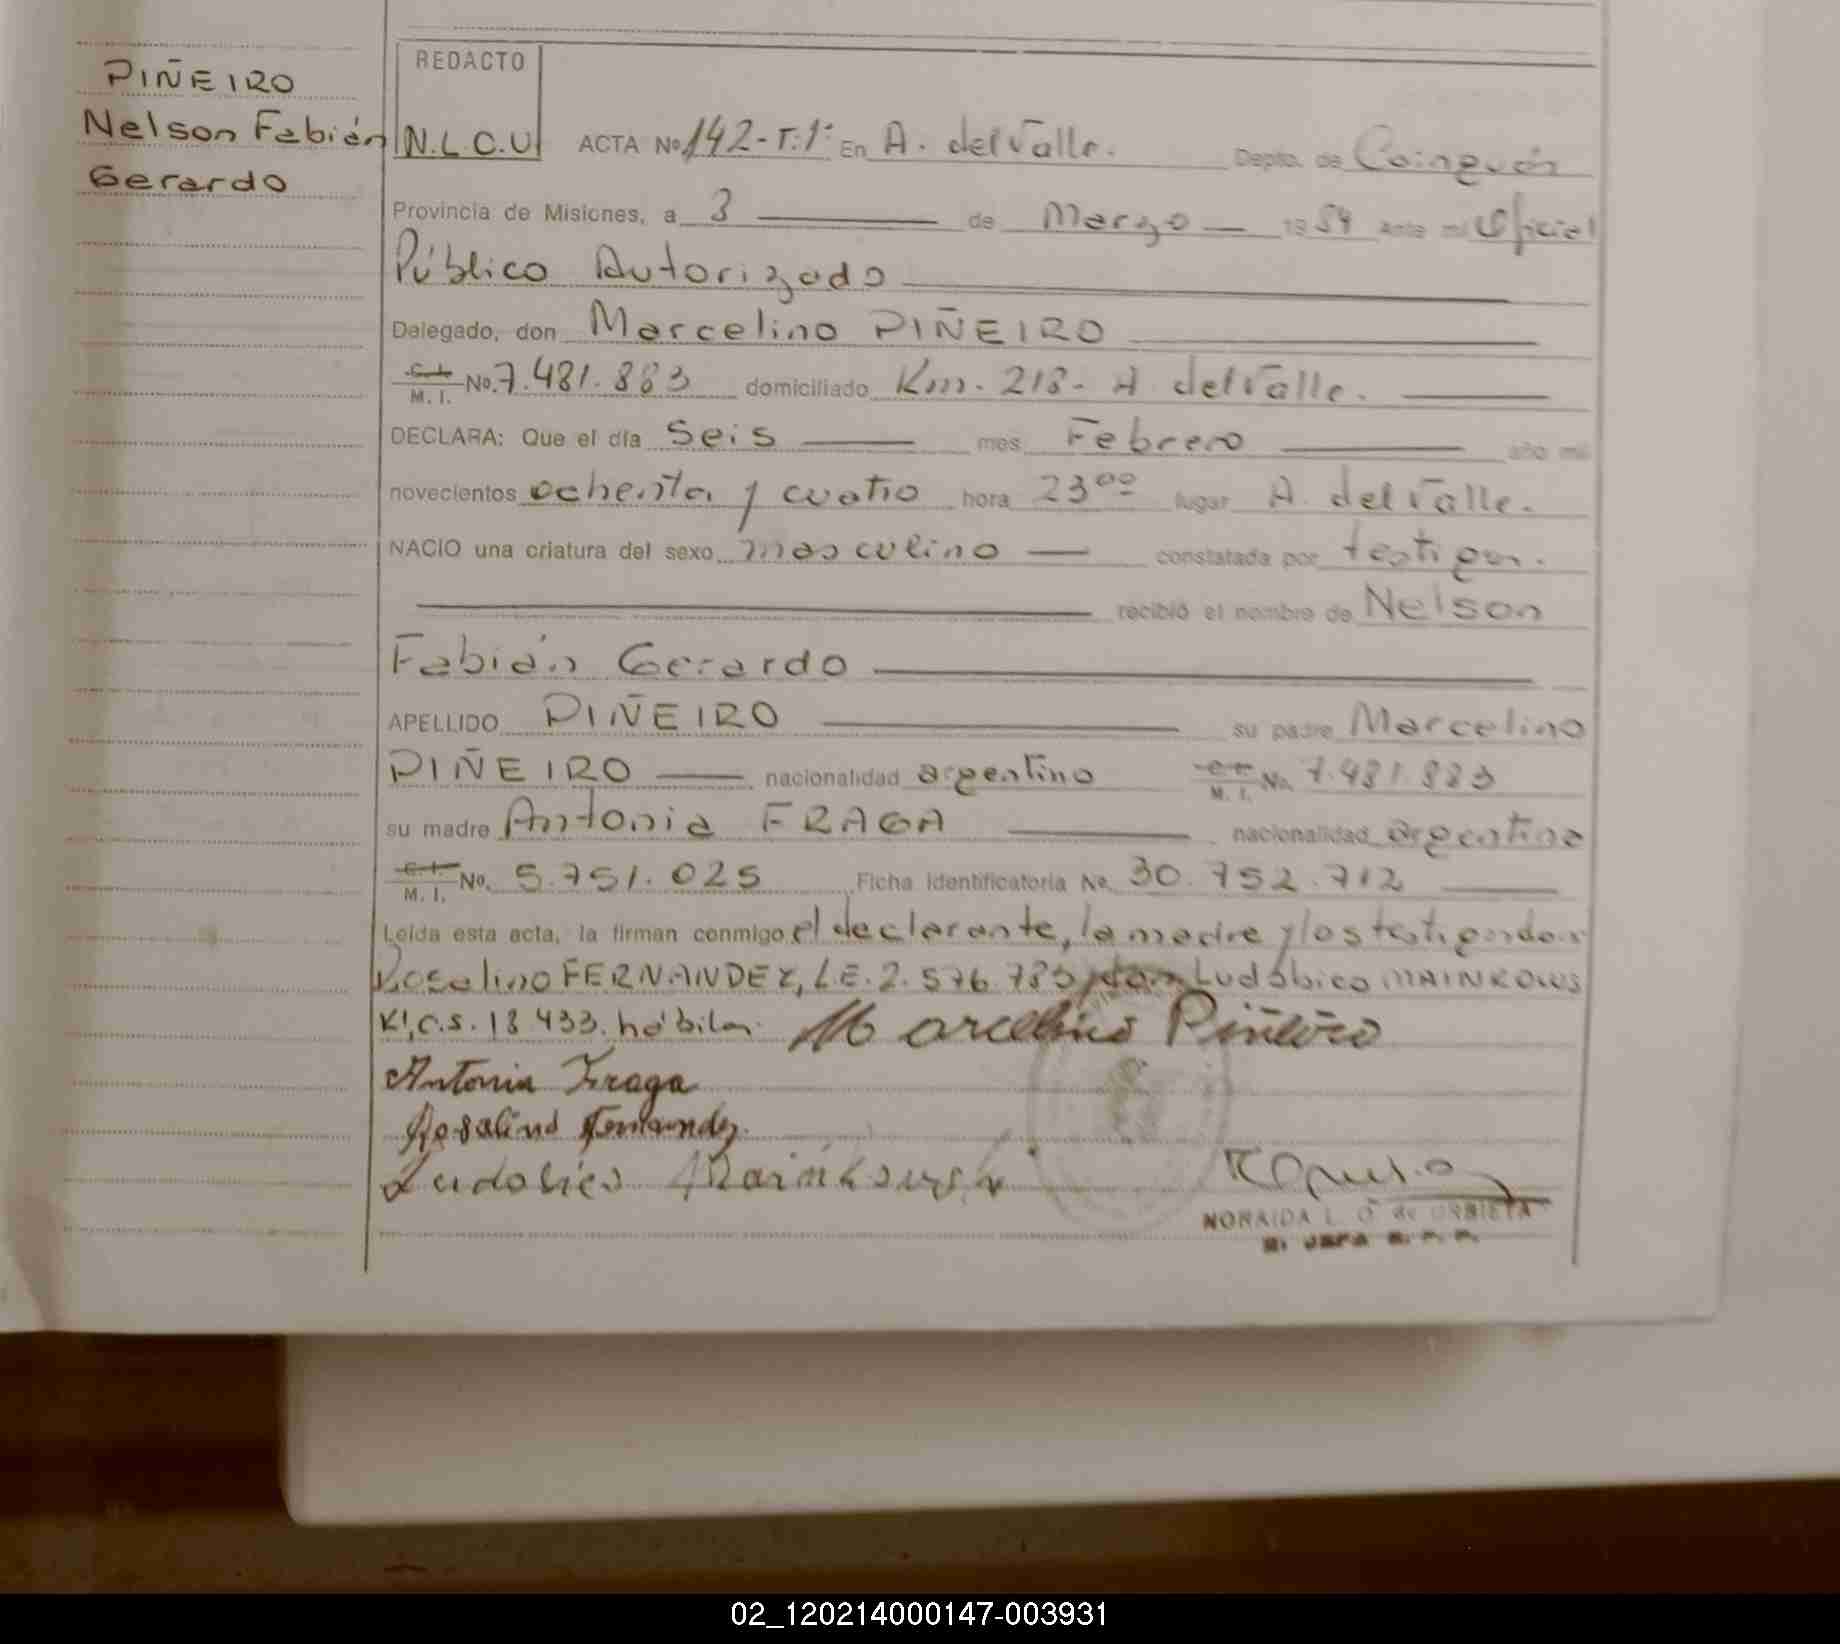 PIÑEIRO
Nelson Fabián
Gerardo
REDACTO
N.L.C.U
ACTA No 142-T:1º En A. del Valle. Depto. de Cainguás
Provincia de Misiones, a 3 de Marzo 1984 ante mi Oficial
Público Autorizado
Delegado, don Marcelino PIÑEIRO
C.I. M. I. No. 7.481.883 domiciliado Km. 218- A. del Valle.
DECLARA: Que el día Seis mes Febrero año mil
novecientos ochenta y cuatro hora 23ºº lugar A. del Valle.
NACIO una criatura del sexo masculino constatada por testigos.
recibió el nombre de Nelson
Fabián Gerardo
APELLIDO PIÑEIRO su padre Marcelino
PIÑEIRO nacionalidad argentino C.I. M. I. No. 7.481.883
su madre Antonia FRAGA nacionalidad argentina
C.I. M. I. No. 5.751.025 Ficha Identificatoria No. 30.752.712
Leída esta acta, la firman conmigo el declarante, la madre y los testigos don
Rosalino FERNANDEZ, L.E. 2.576.783 y don Ludobico MAINKOWS
KI, C.S. 18.433. hábiles.
Marcelino Piñeiro
Antonia Fraga
Rosalino Fernandez.
Ludobico Mainkowski
NORAIDA L. O. de URBIETA
02_120214000147-003931